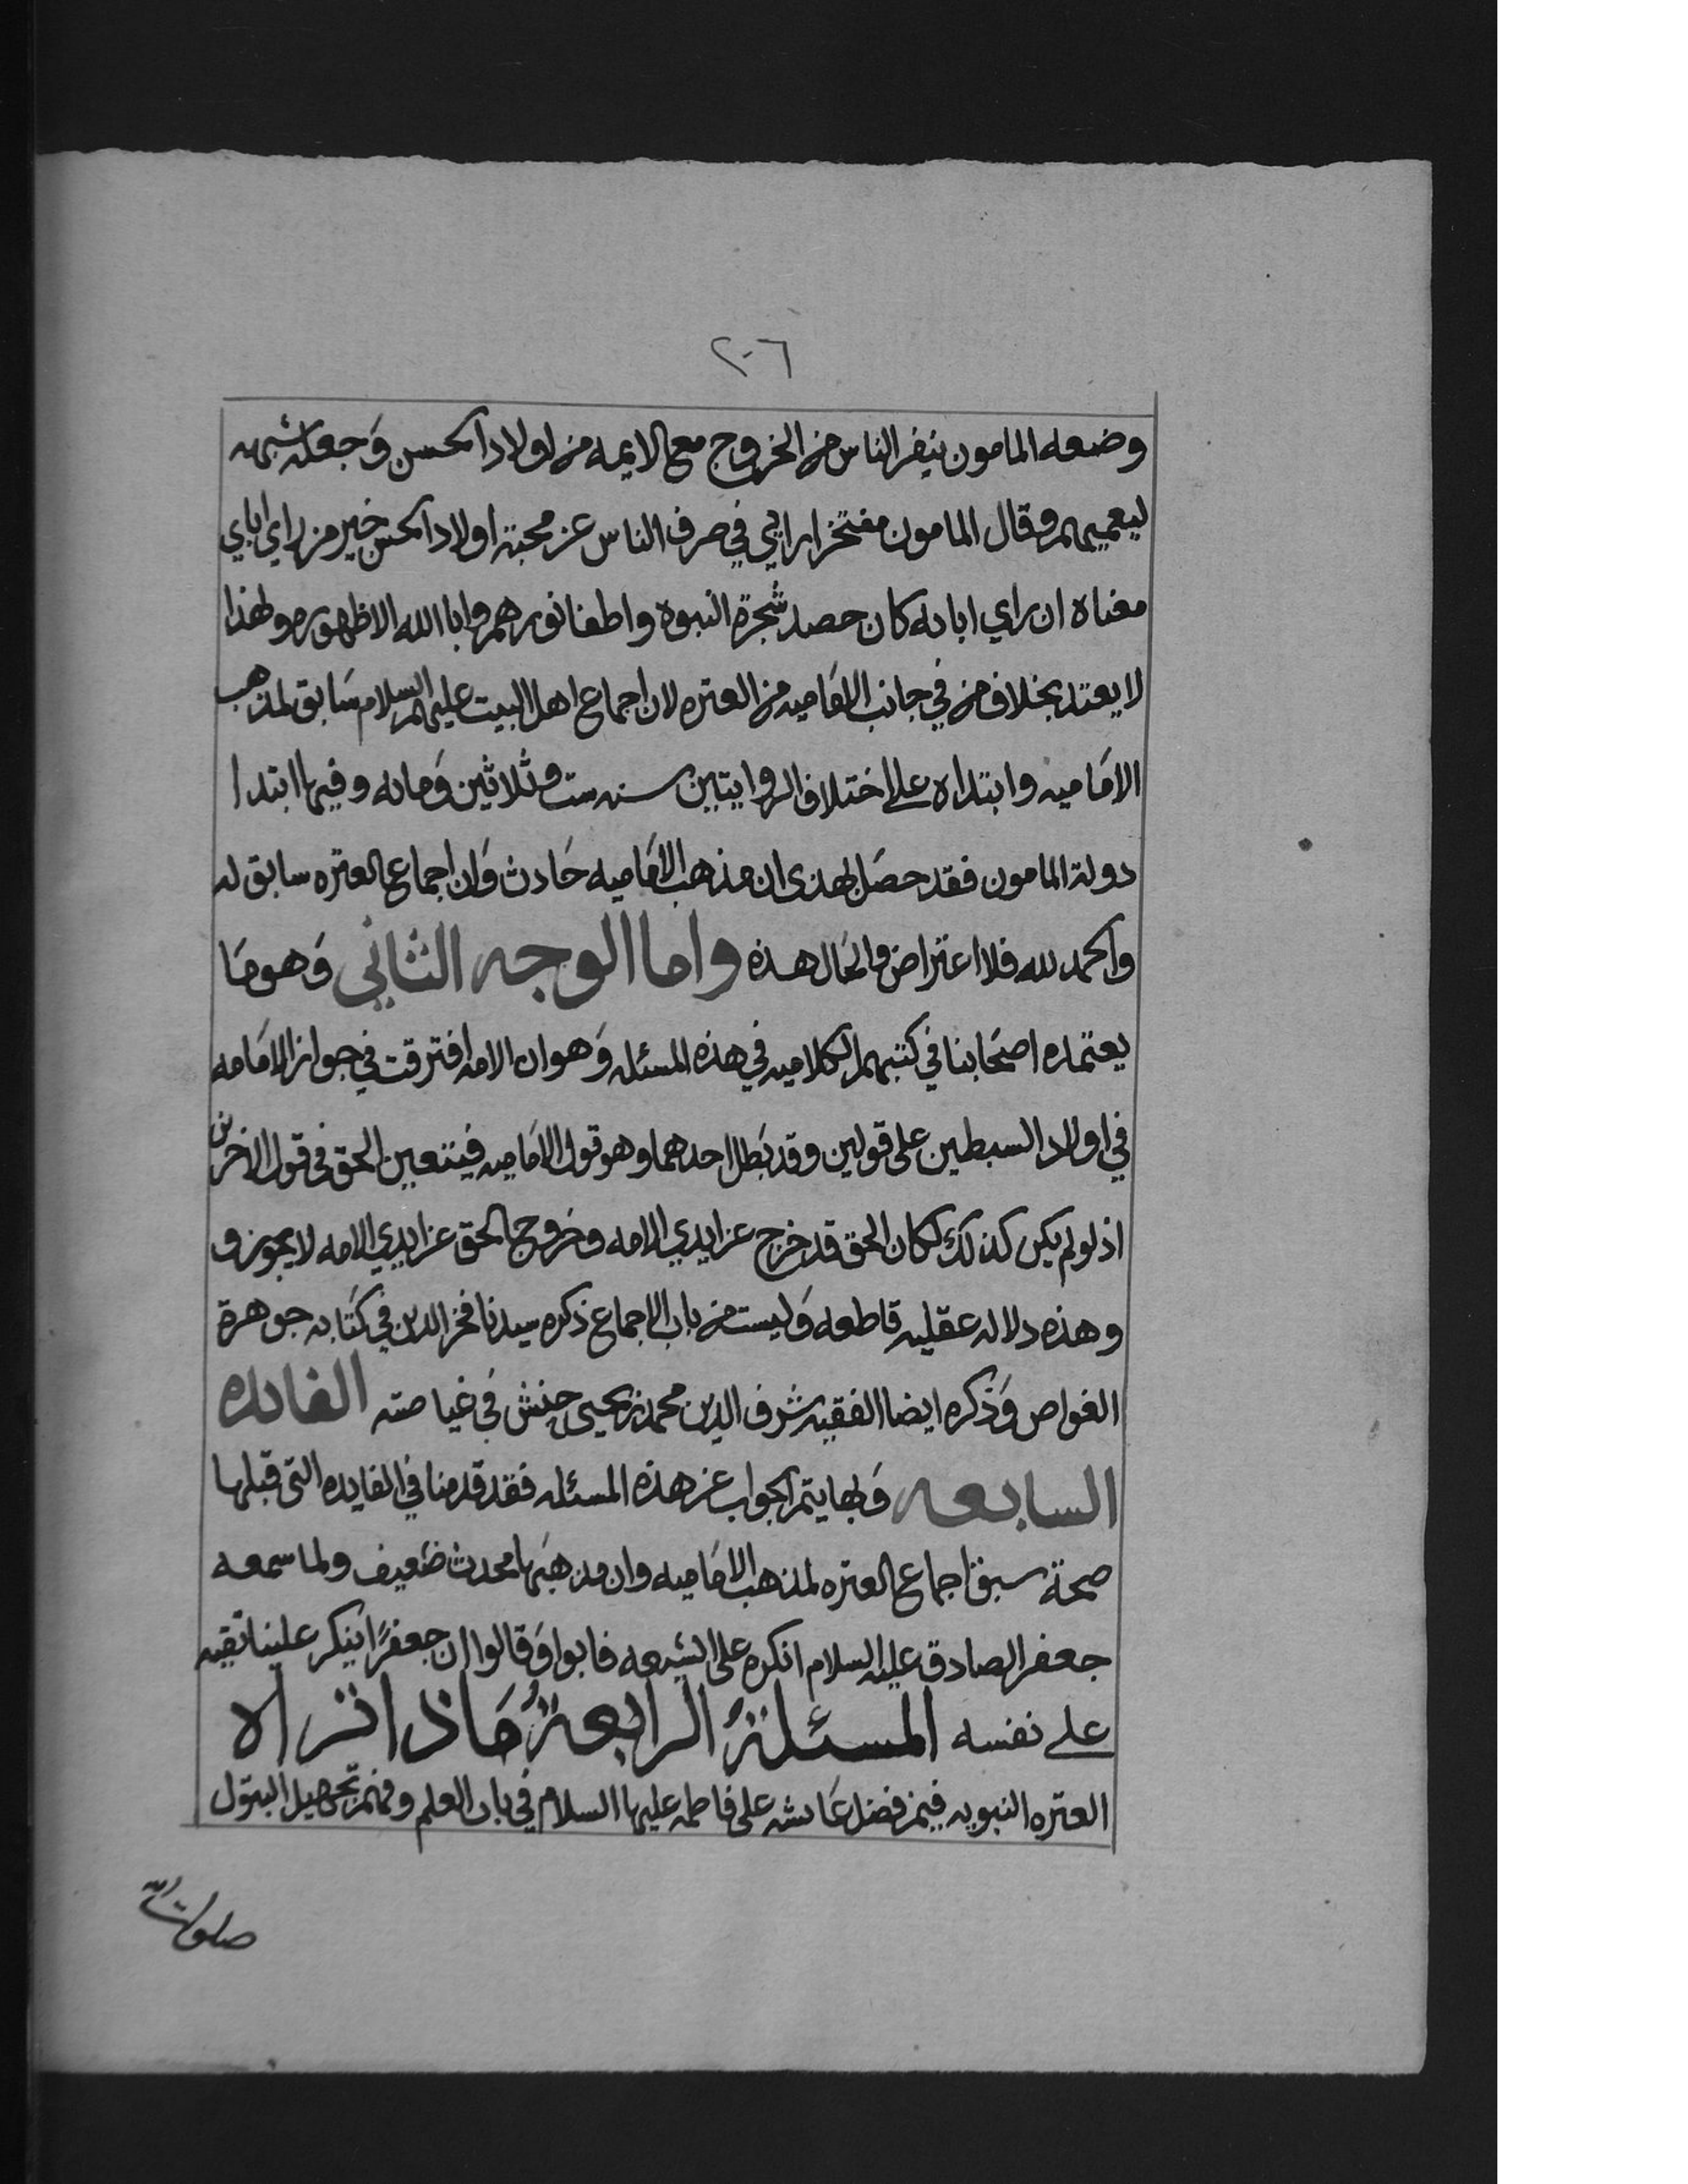 ٢٠٦
وضعه المامون ينفر الناس من الخروج مع الايمه من اولاد الحسن وَجعله شبهه
ليعميهم وقال المامون مفتخرا رايي في صرف الناس عن محبة اولاد الحسن خير من راي اباي
معناه ان راي اباىه كان حصد شجرة النبوه واطفا نورهم وابا الله الا ظهوره ولهذا
لا يعتد بخلاف من في جانب الاماميه من العتره لان اجماع اهل البيت عليهم السلام سَابق لمذهب
الامَاميه وابتداه على اختلاف الروايتين سنه ست وثلاثين وَمايه وفيها ابتدا
دولة المامون فقد حصَل بهذى ان مذهب الامَاميه حَادث وَان اجماع العتره سابق له
والحمد لله فلا اعتراض والحَال هذه واما الوجه الثاني وَهو مَا
يعتمده اصحَابنا في كتبهم الكلاميه في هذه المسئله وَهو ان الامه افترقت في جواز الامَامه
في اولاد السبطين على قولين وقد بَطل احدهما وهو قول الامَاميه فيتعين الحق في قول الاخرين
اذ لو لم يكن كذلك لكان الحق قد خرج عن ايدي الامه وخروج الحق عن ايدي الامه لا يجوز و
وهذه دلاله عقليه قاطعه وَليست من باب الاجماع ذكره سيدنا فخر الدين في كتَابه جوهرة
الغواص وَذكره ايضا الفقيه شرف الدين محمد بن يحيى حنش في غياصته الفايده
السابعه وَبها يتم الجواب عن هذه المسئله فقد قدمنا في الفايده التى قبلها
صحة سبق اجماع العتره لمذهب الامَاميه وان مذهبَها محدث ضَعيف ولما سمعه
جعفر الصادق عليه السلام انكره على الشيعه فابوا وَقالوا ان جعفرًا ينكر علينا تقيه
على نفسه المسئلةُ الرابعةُ مَاذا تراه
العتره النبويه فيمن فضل عَايشه على فاطمه عليها السلام في باب العلم تجهيل البتول
صلوات